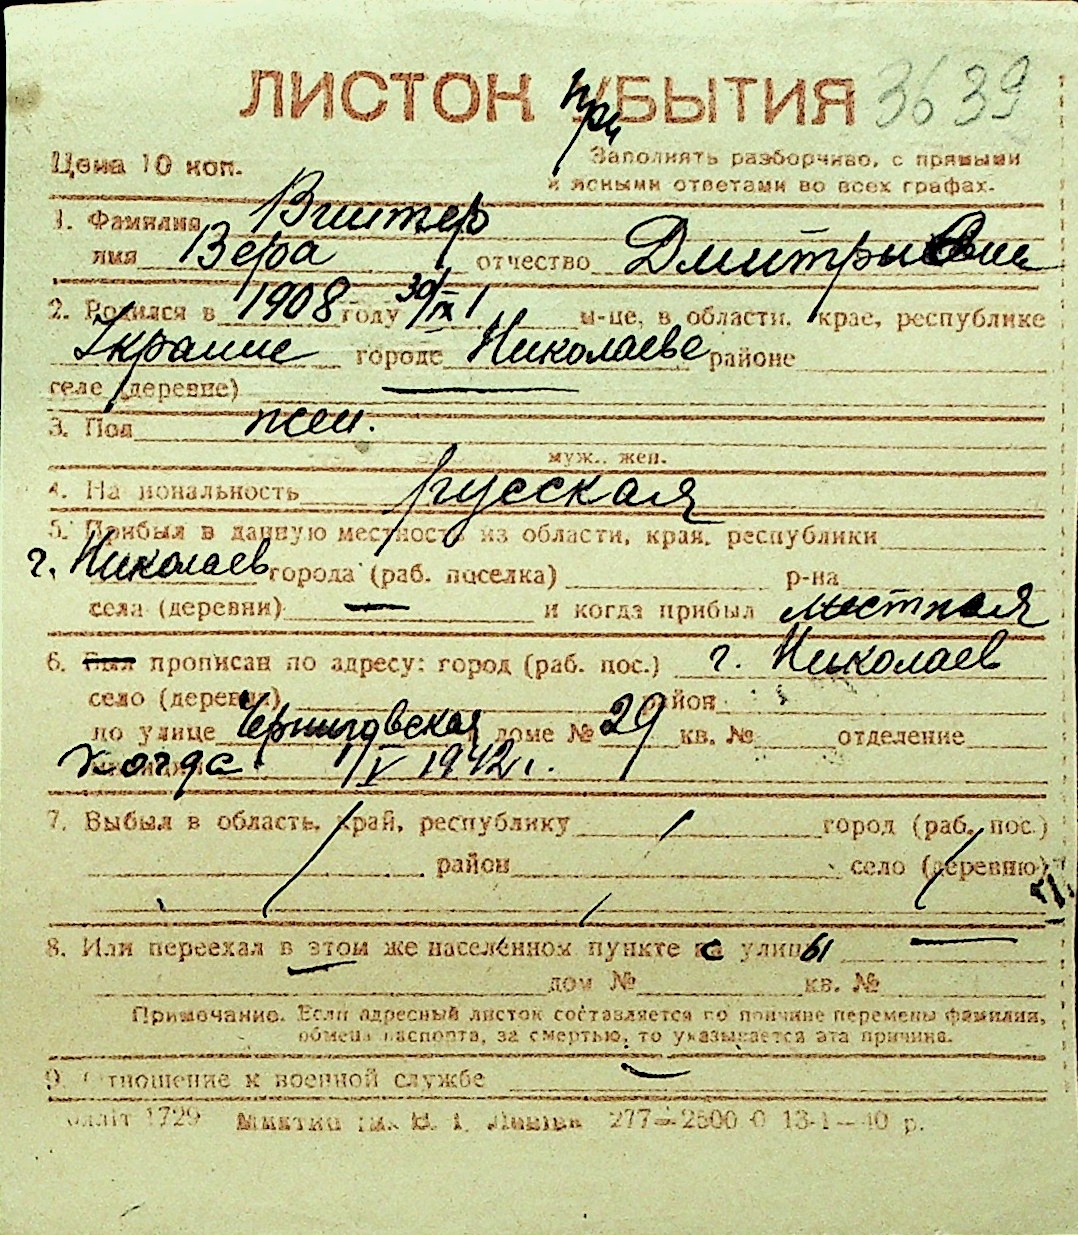 ЛИСТОК УБЫТИЯ 3639
при
Цена 10 коп.
Заполнять разборчиво, с прямыми
и ясными ответами во всех графах.
1. Фамилия
имя Вера отчество
2. Родился в 1908 году 30/IX м-це, в области, крае, республике
Украине городе Николаеве районе
селе (деревне) —
3. Пол жен.
муж., жен.
4. Национальность русская
5. Прибыл в данную местность из области, края, республики
г. Николаев города (раб. поселка) р-на
села (деревни) — и когда прибыл местная
6. Был прописан по адресу: город (раб. пос.) г. Николаев
село (деревня) район
по улице Черниговская доме № 29 кв. № отделение
когда 1/V 1942 г.
7. Выбыл в область, край, республику город (раб. пос.)
район село (деревню)
8. Или переехал в этом же населённом пункте с улицы —
дом № кв. №
Примечание. Если адресный листок составляется по причине перемены фамилии,
обмена паспорта, за смертью, то указывается эта причина.
9. Отношение к военной службе —
1729 277—2500 0 13-1—40 р.